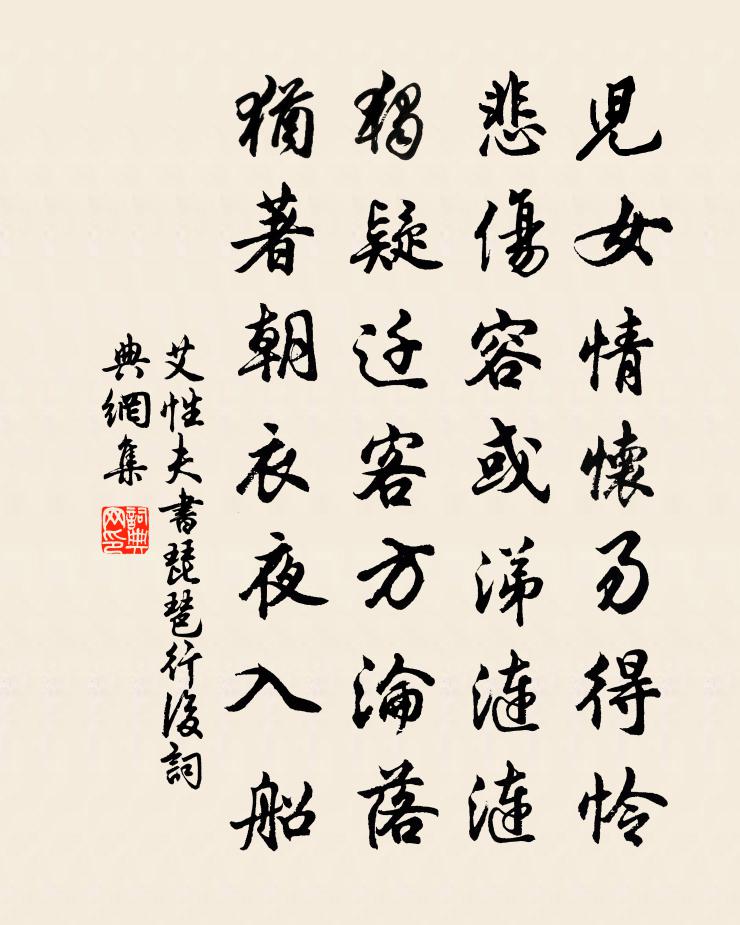 兒女情懷易得怜
悲傷容或涕漣漣
獨疑迁客方淪落
猶著朝衣夜入船
艾性夫書琵琶行後詞
典網集
詞典網印